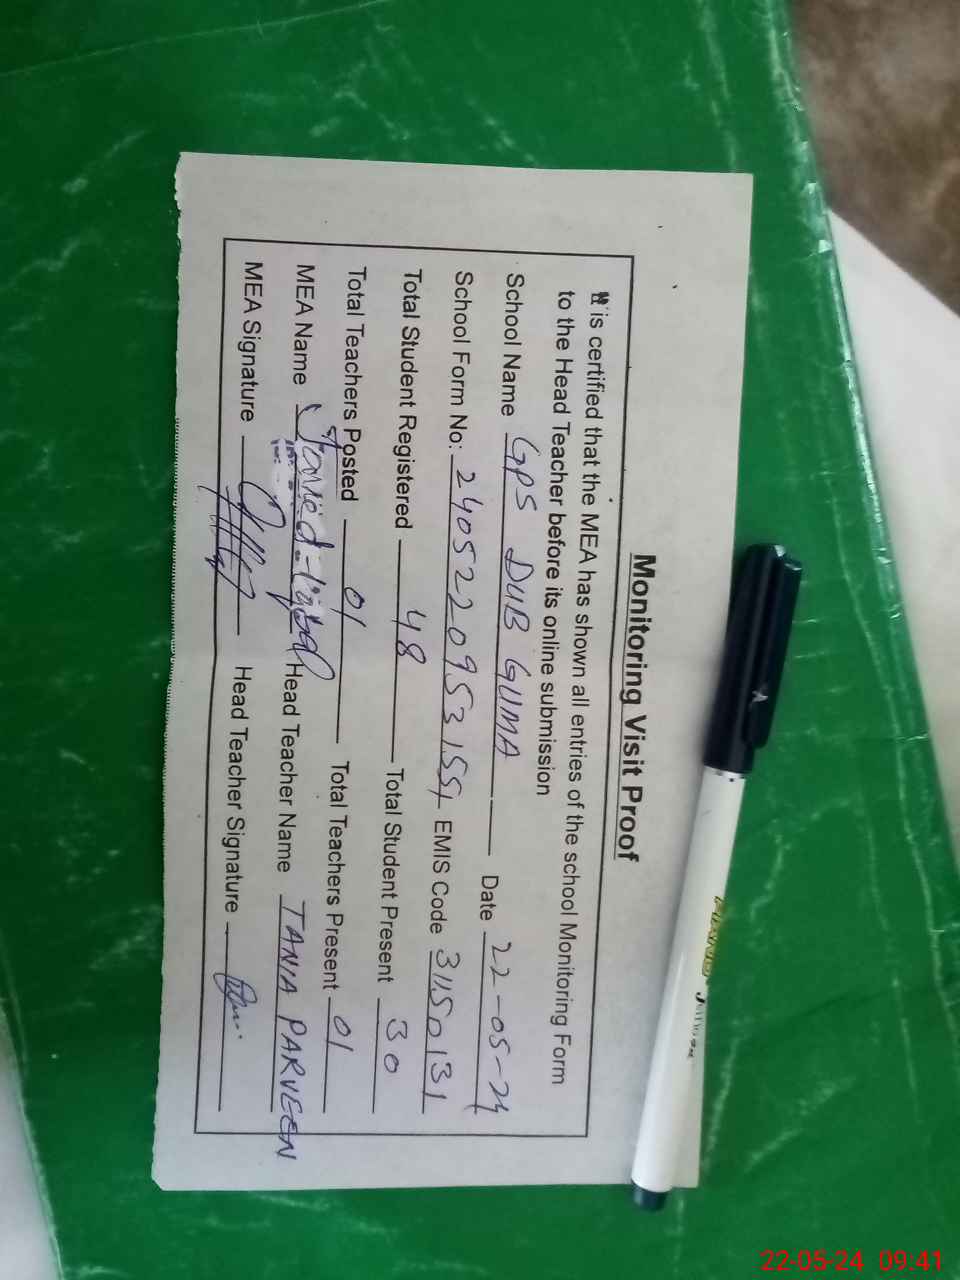 Monitoring Visit Proof
It is certified that the MEA has shown all entries of the school Monitoring Form
to the Head Teacher before its online submission
School Name GPS DUB GUMA Date 22-05-24
School Form No: 24052209531551 EMIS Code 31150131
Total Student Registered 48 Total Student Present 30
Total Teachers Posted 01 Total Teachers Present 01
MEA Name Javied Iqbal Head Teacher Name TANIA PARVEEN
MEA Signature Head Teacher Signature
22-05-24 09:41